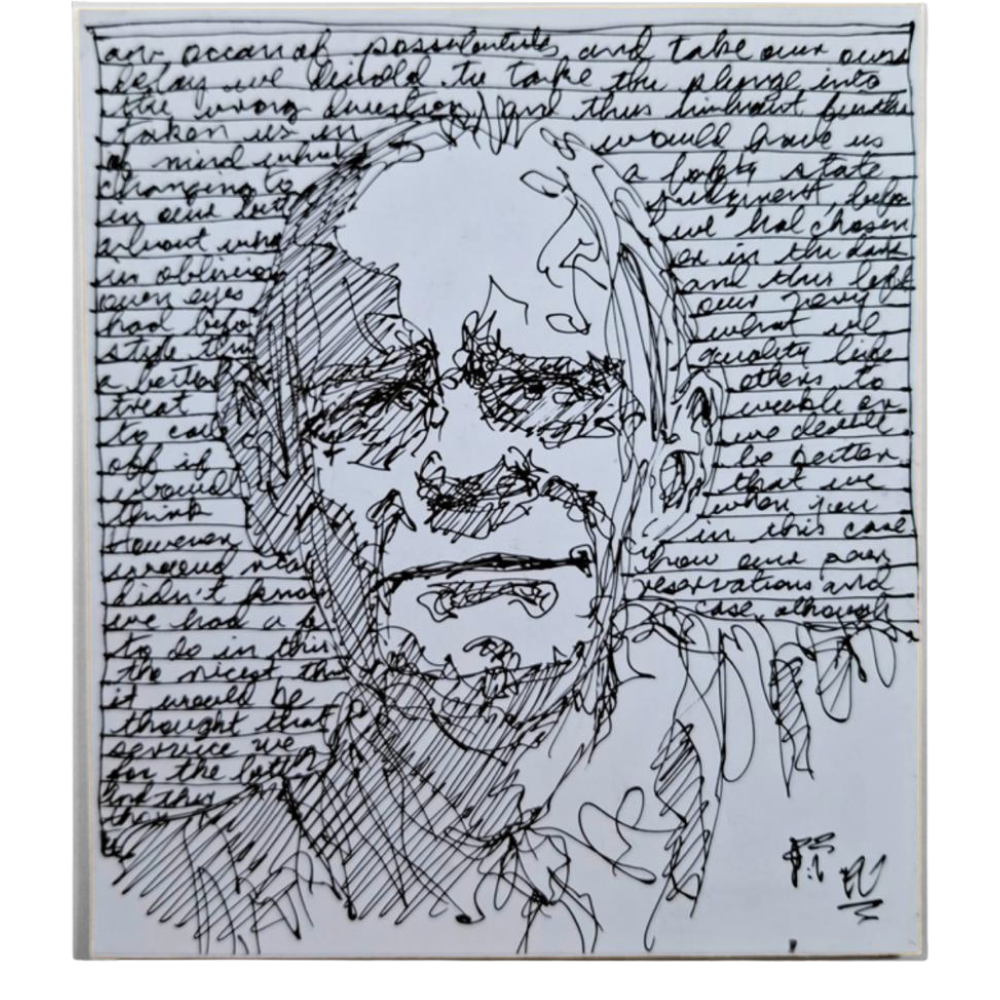 an ocean of possibilities and take our own
delay we decide to take the plunge into
the wrong question and thus without further
taken us in would have us
of mind which a foggy state
changing to judgment, befo
in our but we had chosen
about who or in the dark
in oblivion and this left
own eyes our
had befo what we
state this quality like
a better others to
treat or
to cou we
odd if be better
would that we
think when you
However in this case
how our
didn't know reservations and
we had a case, although
to do in this
the nicest thi
it would be
thought that
service we
for the
and this
than